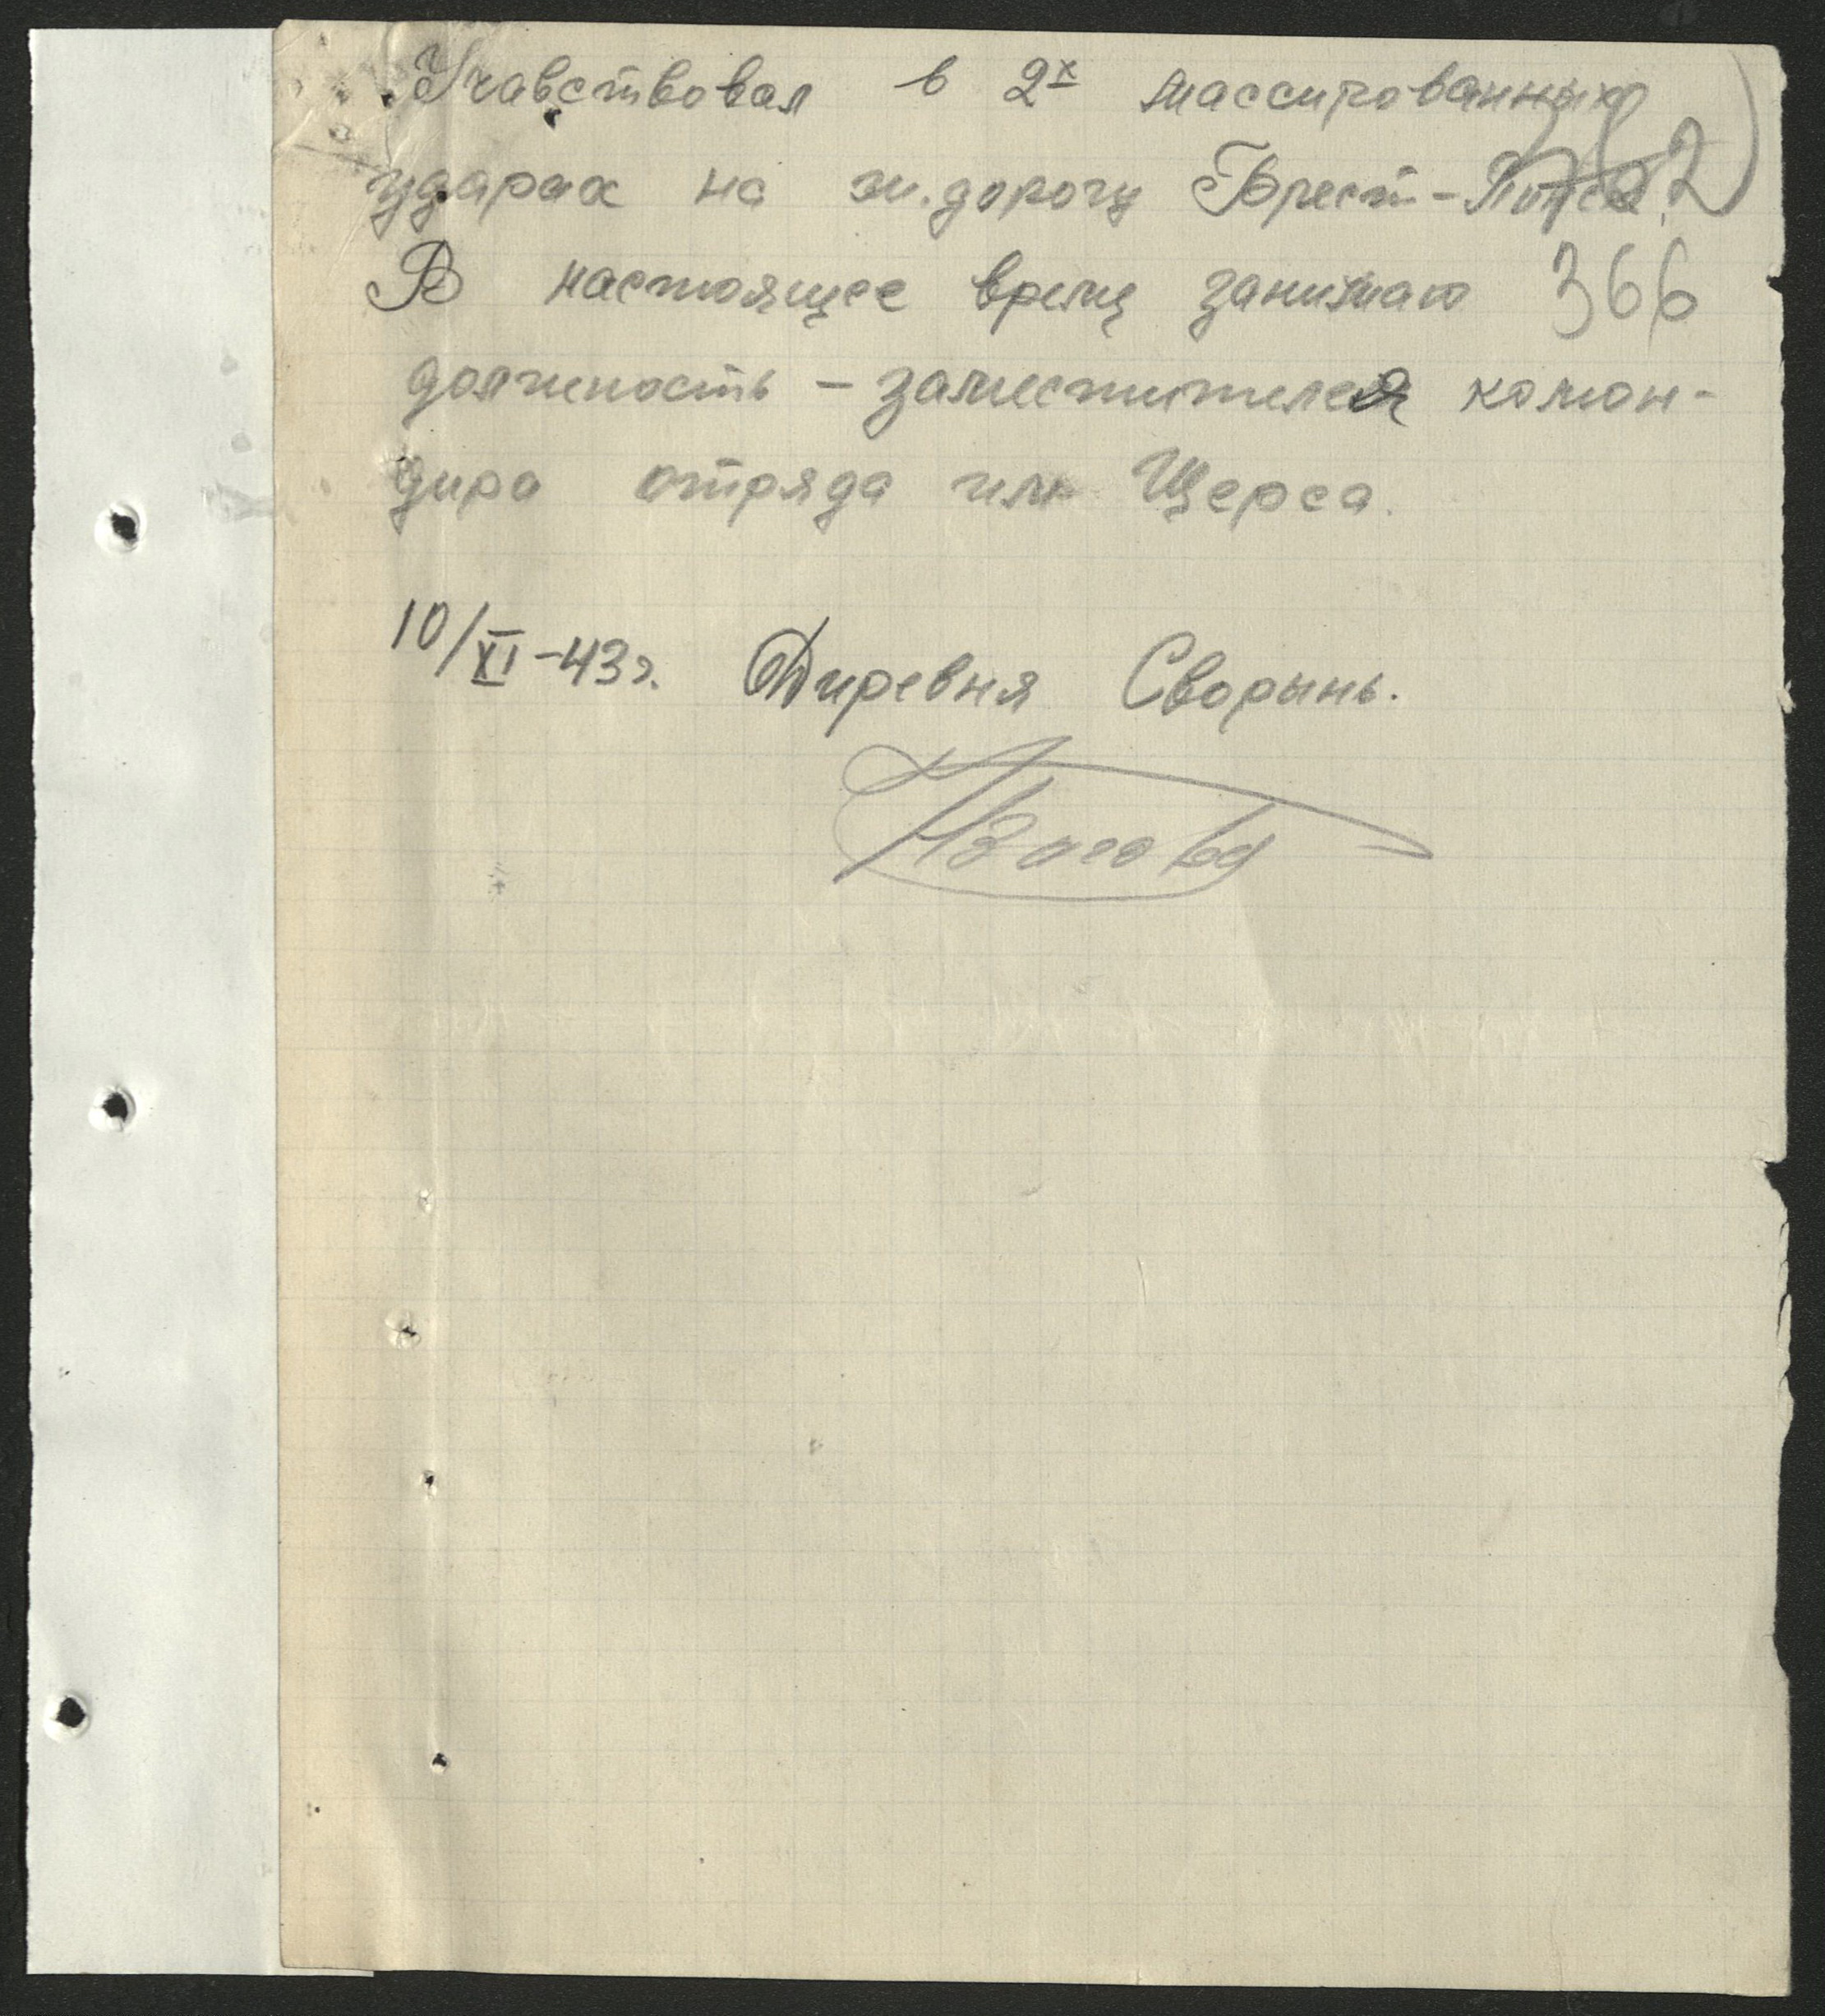 Учавствовал в 2х массированных
ударах на ж.дорогу Брест-Пинск.
В настоящее время занимаю 366
должность – заместителя коман-
дира отряда им Щерса.
10/XI-43г. Диревня Сворынь.